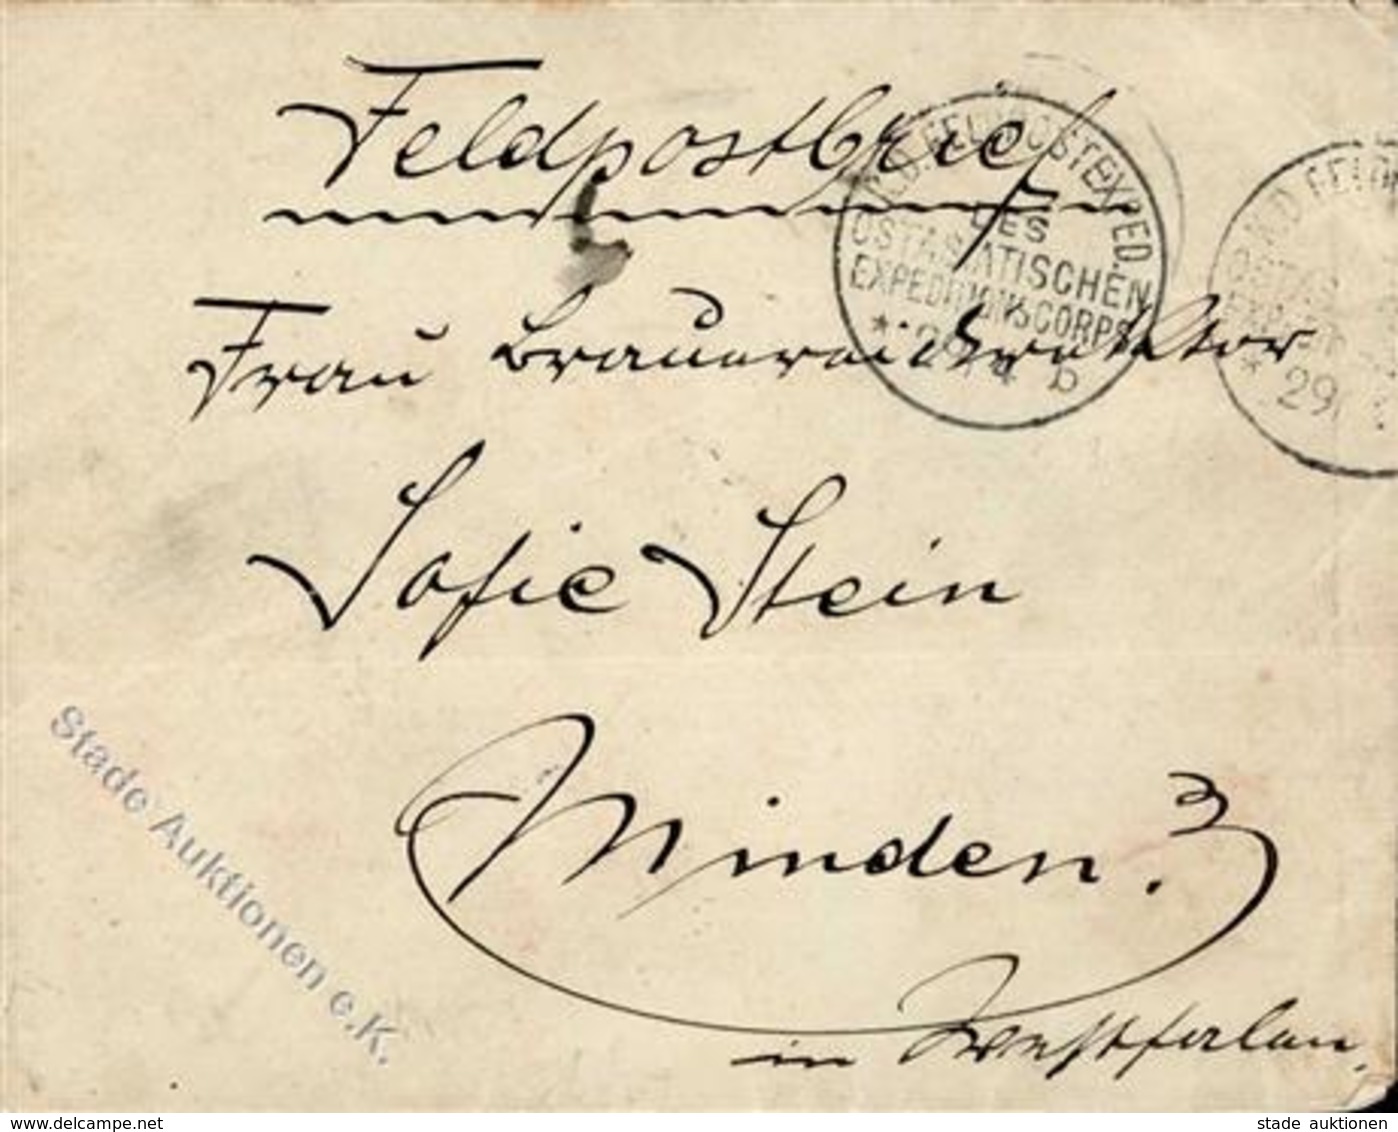 Feldpostbrief
K.D. FELDPOSTEXPED.
DES
OSTASIATISCHEN
EXPEDITIONSCORPS
* b
Frau Brauereidirektor
K.D. FELDP
OSTAS
* 29
Sofie Stein
Minden.
in Westfalen.
Stade Auktionen e.K.
www.delcampe.net
stade auktionen